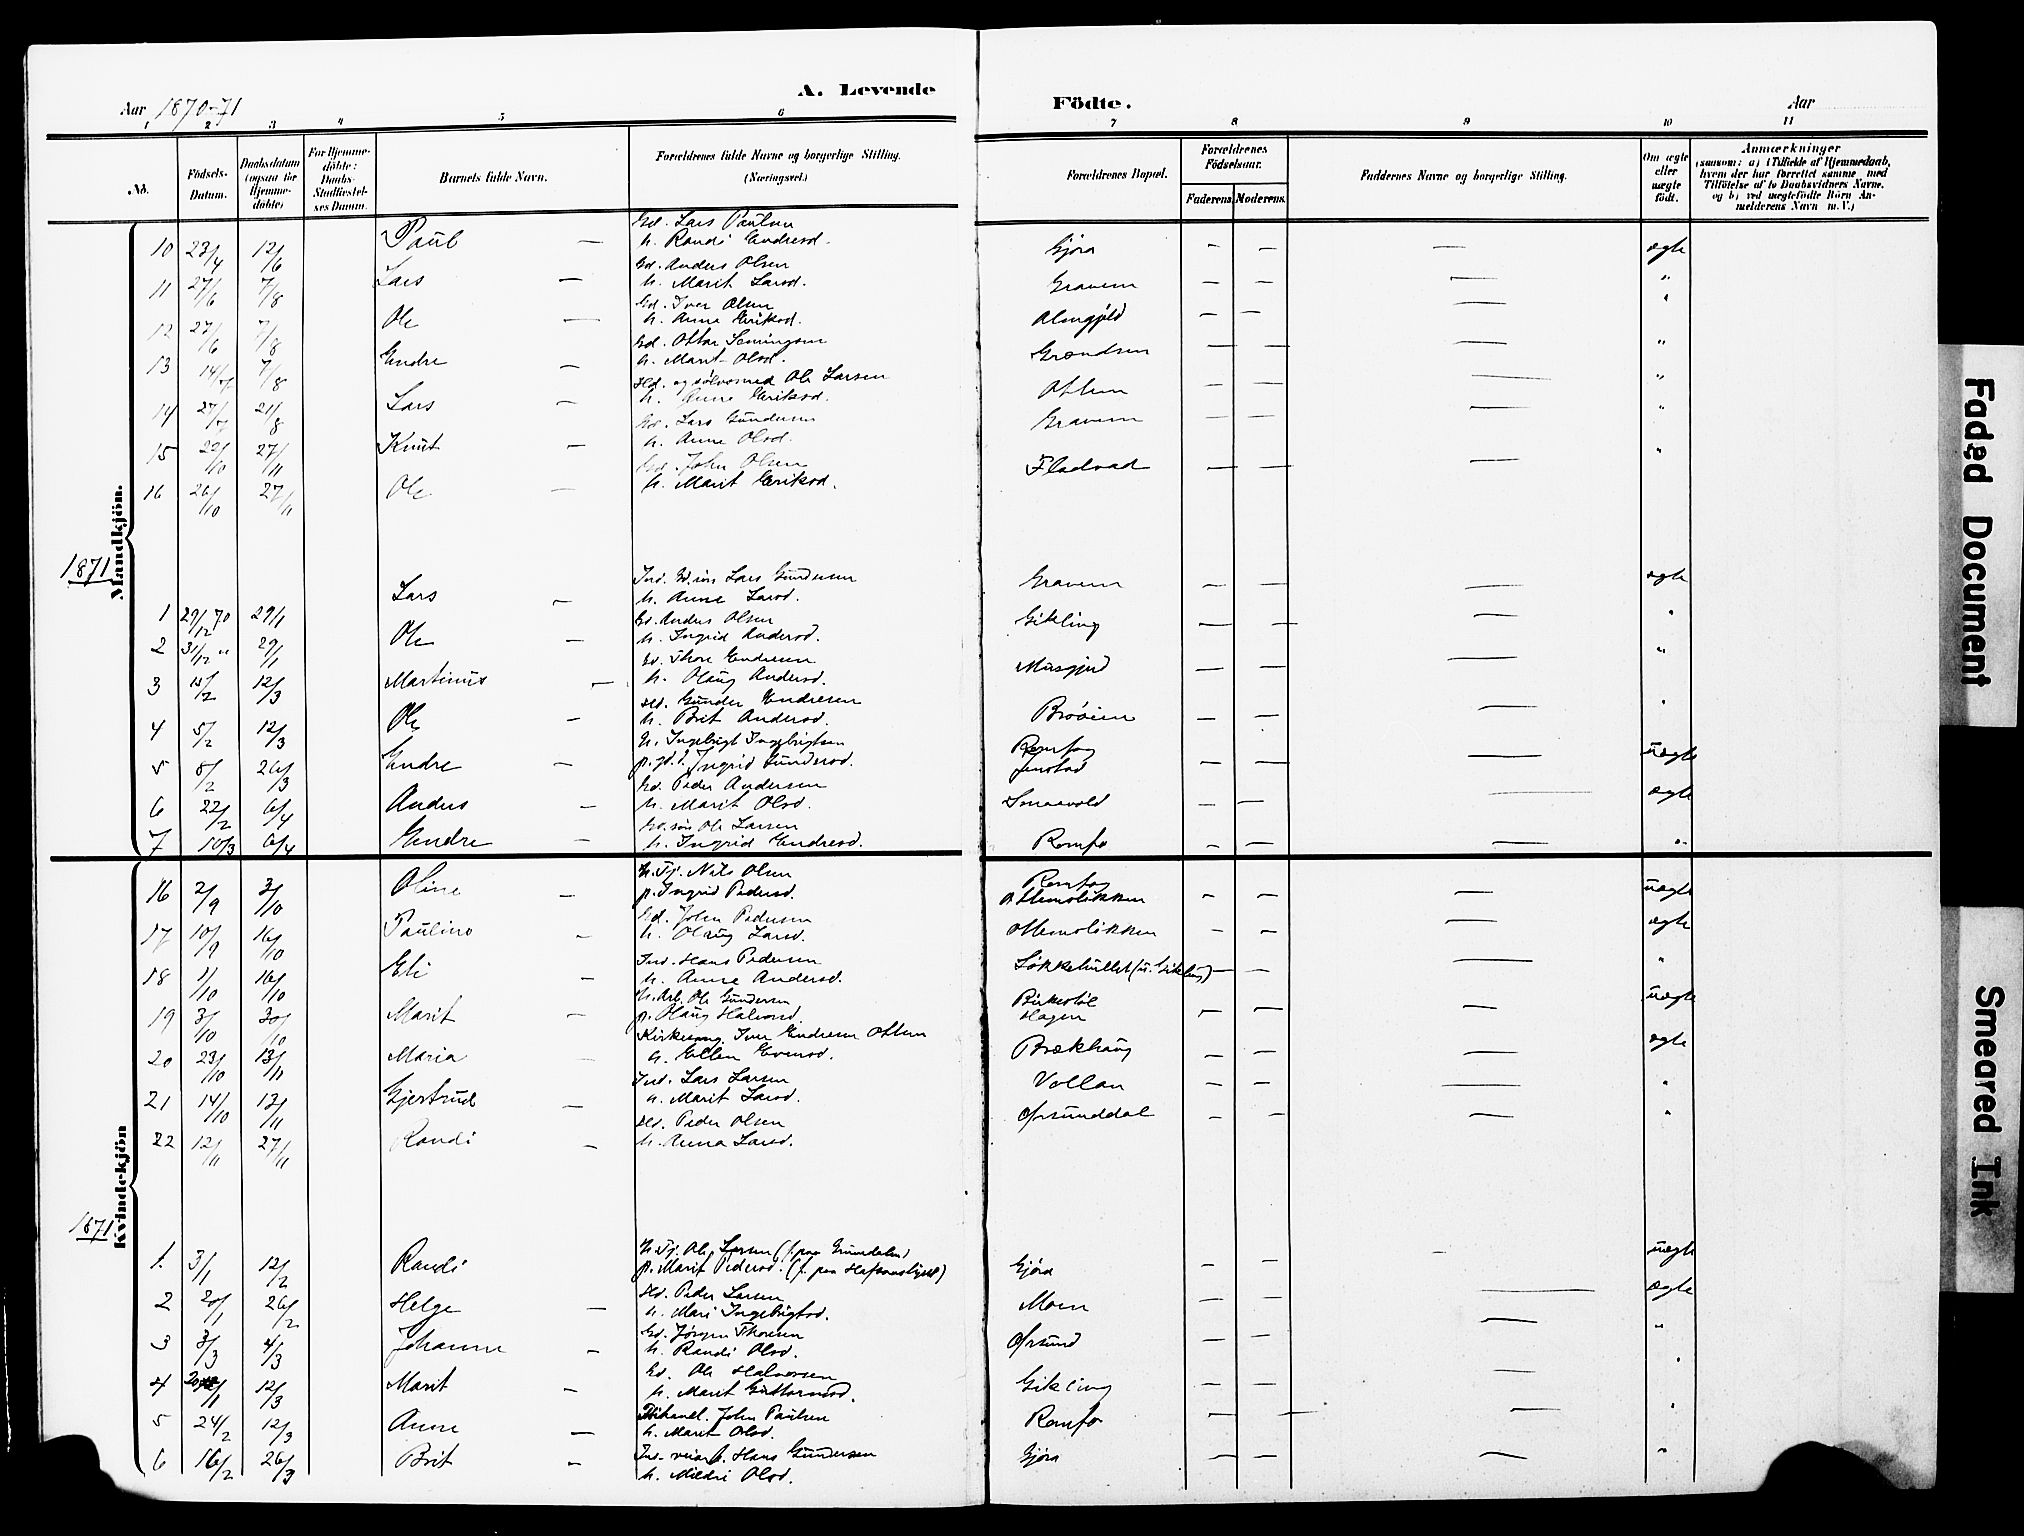 Aar 1870-71
A. Levende
Födte.
Aar
1 2 3 4 5 6 7 8 9 10 11
No.
Födsels-Datum.
Daabsdatum (ogsaa for Hjemme-döbte)
For Hjemme-döbte: Daabs-Stadfæstel-ses Datum.
Barnets fulde Navn.
Forældrenes fulde Navne og borgerlige Stilling. (Næringsvei.)
Forældrenes Bopæl.
Forældrenes Födselsaar.
Faderens. Moderens.
Faddernes Navne og borgerlige Stilling.
Om ægte eller uægte födt.
Anmærkninger
(saasom: a) i Tilfælde af Hjemmedaab, hvem der har forrettet samme med Tilföielse af to Daabsvidners Navne, og b) ved uægtefödte Börn An-melderens Navn m. V.)
Mandkjön.
10 23/4 12/6 Paul — Gd. Lars Paulsen h. Randi Endresd. Gjöra — — — ægte
11 27/6 7/8 Lars — Gd. Anders Olsen h. Marit Larsd. Gravem — — — "
12 27/6 7/8 Ole — Gd. Iver Olsen h. Anne Eriksd. Almgjeld — — — "
13 14/7 7/8 Endre — Gd. Ottar h. Marit Olsd. Grændsen — — — "
14 27/7 21/8 Lars — Hd. og sölvsmed Ole Larsen h. Anne Eriksd. Ottem — — — "
15 22/10 27/11 Knut — Gd. Lars Gundersen h. Anne Olsd. Gravem — — — "
16 26/10 27/11 Ole — Gd. John Olsen h. Marit Eriksd. Fladvad — — — "
1871
1 29/12 70 29/1 Lars — Ind. Lars Gundersen h. Anne Larsd. Gravem — — — ægte
2 31/12 " 29/1 Ole — Gd. Anders Olsen h. Ingrid Andersd. Gikling — — — "
3 15/2 12/3 Martinus — Gd. Thore Endresen h. Olaug Andersd. Musgjerd — — — "
4 5/2 12/3 Ole — Hd. Gunder Endresen h. Brit Andersd. Bröien — — — "
5 8/2 26/3 Endre — U. Ingebrigt Ingebrigtsen p. gd. d. Ingrid Gundersd. Romfog Jenstad — — — uægte
6 22/2 6/4 Anders — Gd. Peder Andersen h. Marit Olsd. Smaavold — — — ægte
7 10/3 6/4 Endre — Gd. sön Ole Larsen h. Ingrid Endresd. Romfo — — — "
Kvindekjön
16 2/9 3/10 Oline — U. Tj. Nils Olsen p. Ingrid Pedersd. Romfog Hemslökken — — — uægte
17 10/9 16/10 Pauline — Gd. John Pedersen h. Olaug Larsd. Hemslökken — — — ægte
18 11/10 16/10 Eli — Ind. Hans Pedersen h. Anne Andersd. Lökkehullet (u. Gikling) — — — "
19 3/10 30/10 Marit — U. Arb. Ole Gundersen p. Olaug Halvorsd. Birkeslöl Hagen — — — uægte
20 23/10 13/11 Maria — Kirkesang. Iver Endresen Ottem h. Ellen Evensd. Brækhaug — — — ægte
21 14/10 13/11 Gjertrud — Ind. Lars Larsen h. Marit Larsd. Vollan — — — "
22 12/11 27/11 Randi — Hd. Peder Olsen h. Anna Larsd. Örsunddal — — — "
1871
1. 3/1 12/2 Randi U. Tj. Ole Larsen (f. paa Grundalen) p. Marit Pedersd. (f. paa Hafsaas) Gjöra — — — uægte
2 20/1 26/2 Helge — Hd. Peder Larsen h. Mari Ingebrigtsd. Moen — — — ægte
3 3/3 4/3 Johanne — Gd. Jörgen Thoresen h. Randi Olsd. Örsund — — — "
4 20/1 12/3 Marit — Gd. Ole Halvorsen h. Marit Guttormsd. Gikling — — — "
5 24/2 12/3 Anne — John Paulsen h. Marit Olsd. Romfo — — — "
6 16/2 26/3 Brit — Ind. veiarb. Hans Gundersen h. Mildri Olsd. Gjöra — — — "
Faded Document
Smeared Ink